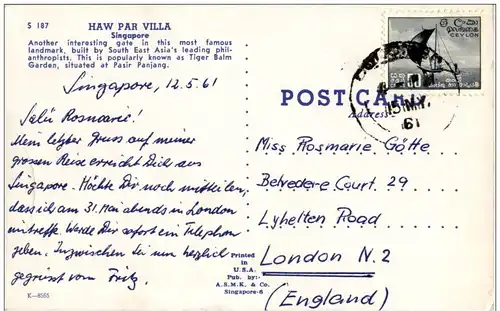 S 187
HAW PAR VILLA
Singapore
Another interesting gate in this most famous
landmark, built by South East Asia's leading phil-
anthropists. This is popularly known as Tiger Balm
Garden, situated at Pasir Panjang.
Singapore, 12.5.61
Salü Rosmarie!
Mein letzter Gruss auf meiner
grossen Reise erreicht Dich aus
Singapore. Möchte Dir noch mitteilen,
dass ich am 31. Mai abends in London
eintreffe. Werde Dir sofort ein Telephon
geben. Inzwischen sei nun herzlich
gegrüsst vom Fritz.
K-8565
Printed
in
U.S.A.
Pub. by:-
A.S.M.K. & Co.
Singapore-6
CEYLON
15 MY.
61
POST CARD
Address
Miss Rosmarie Götte
Belvedere Court. 29
Lyhelten Road
London N.2
(England)